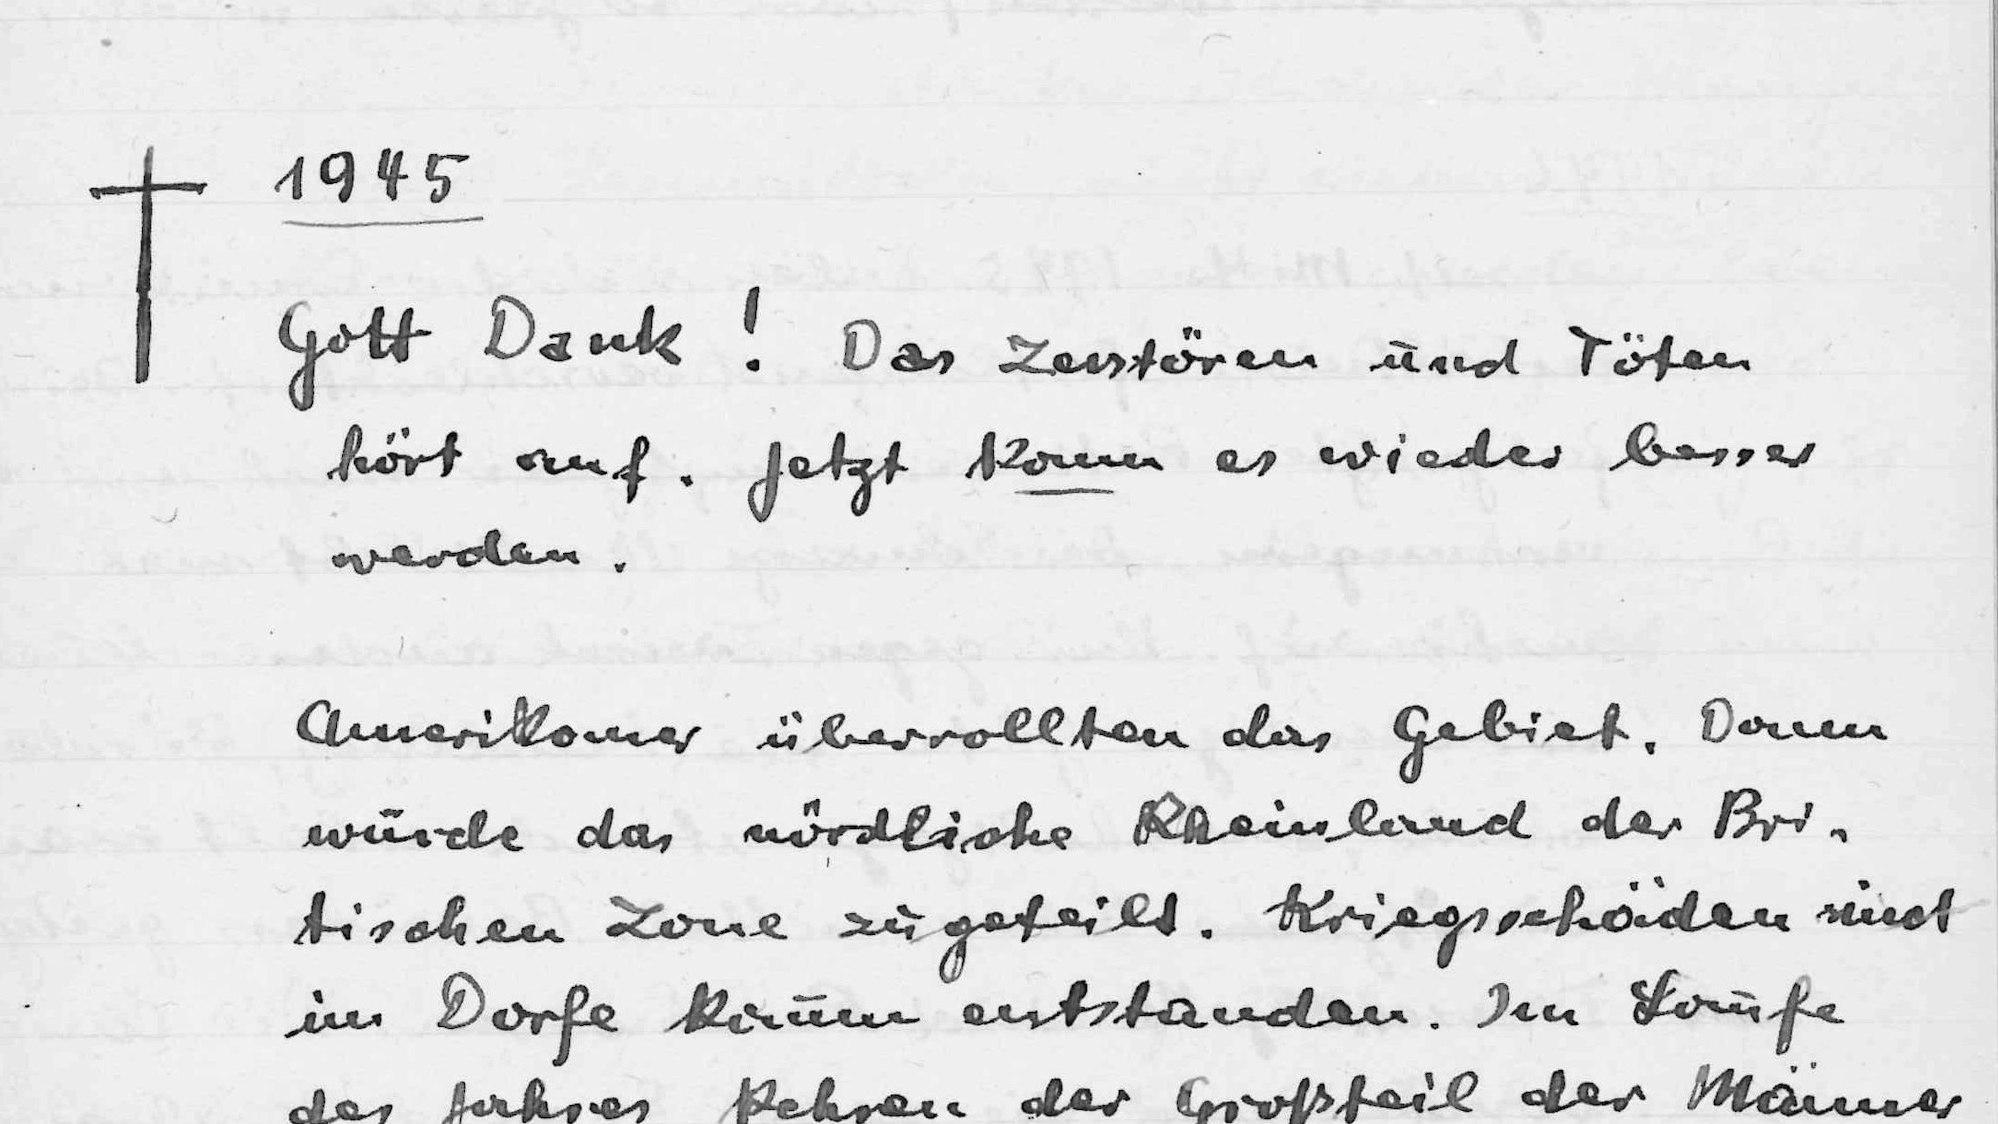 1945
Gott Dank! Das Zerstören und Töten
hört auf. Jetzt kann es wieder besser
werden.
Amerikaner überrollten das Gebiet. Dann
wurde das nördliche Rheinland der Bri-
tischen Zone zugeteilt. Kriegsschäden sind
im Dorfe kaum entstanden. Im Laufe
des Jahres kehren der Großteil der Männer